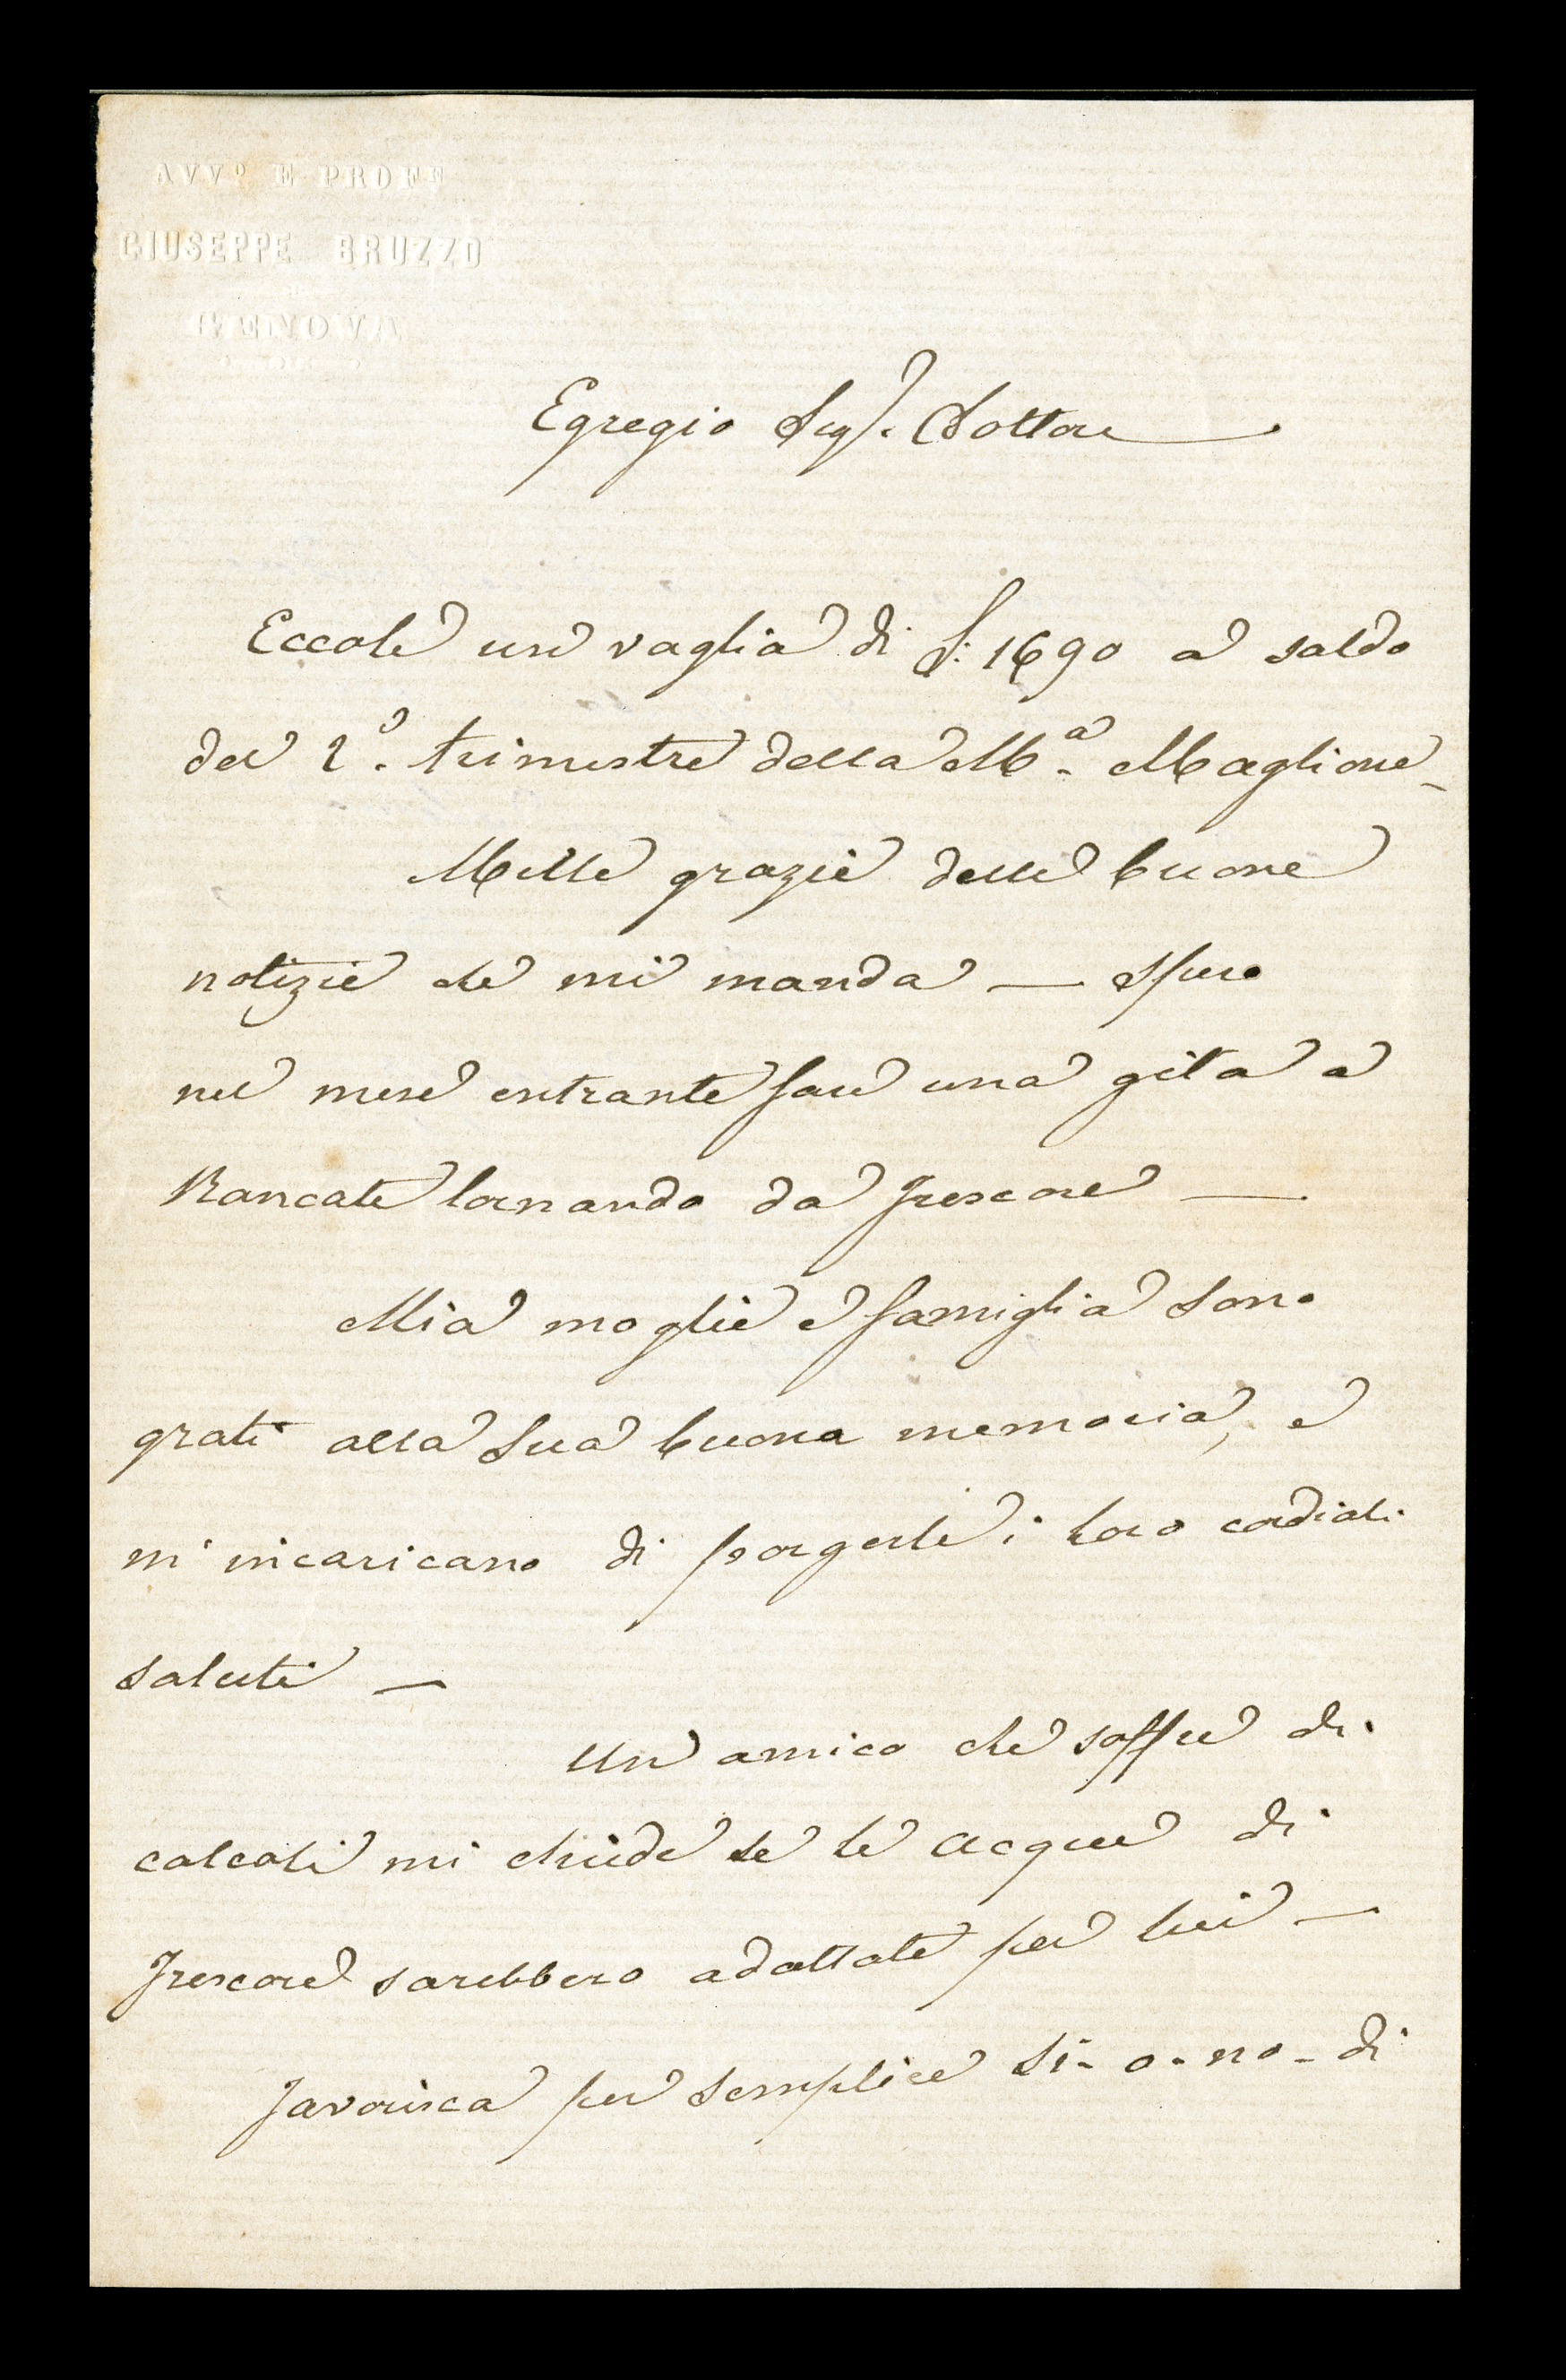 AVVº E PROFE
GIUSEPPE BRUZZO
GENOVA
Egregio Sigr. Dottore
Eccole un vaglia di L: 1690 a saldo
del 2º. trimestre della Mª. Maglione_
Mille grazie delle buone
notizie che mi manda — Spero
nel mese entrante fare una gita a
Rancate tornando da Trescore —
Mia moglie e famiglia sono
grati alla Sua buona memoria, e
m'incaricano di porgerle i loro cordiali
saluti —
Un amico che soffre di
calcoli mi chiede se le acque di
Trescore sarebbero adattate per lui —
Favorisca per semplice Si- o- no- di